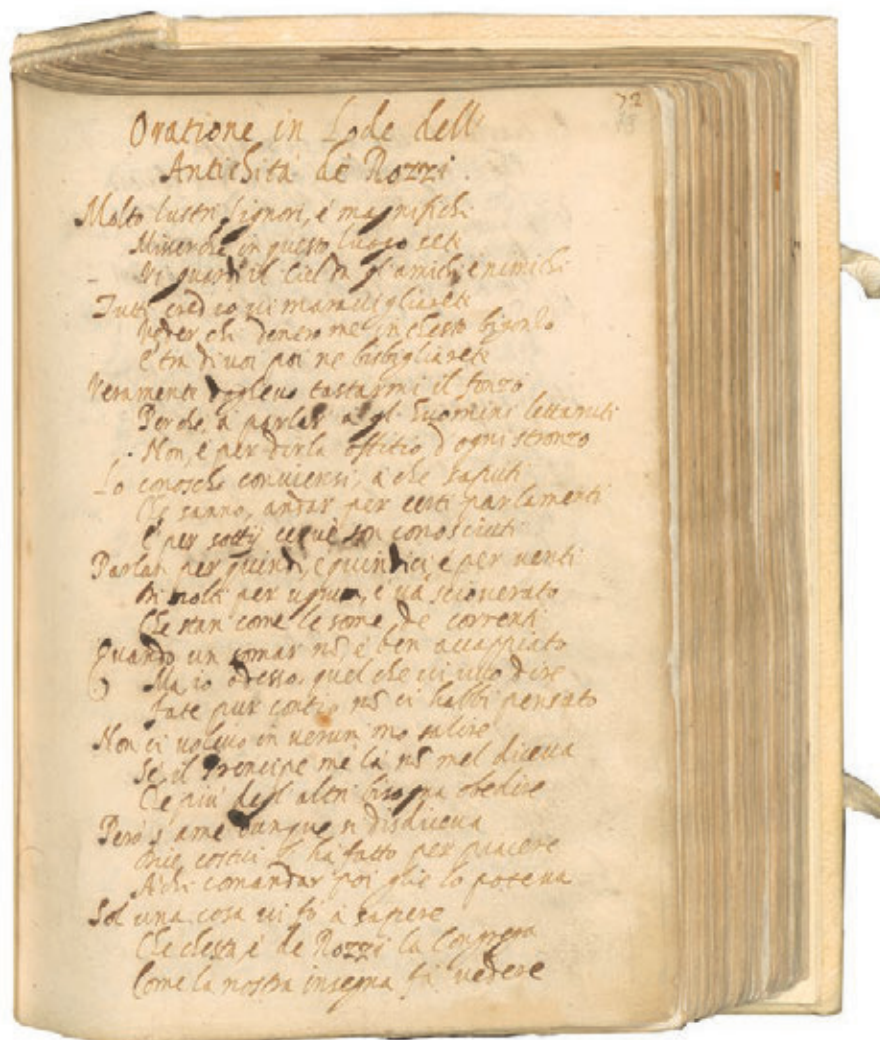 72
Oratione in Lode dell'
Antichità dè Rozzi.
Molto lustri signori, è magnifichi
in questo luogo sete
Vi guardi il Ciel da gl'amichi, e nemichi
Tutti cred'io vi maravigliarete
Veder chi drento me in chesto bigonzo
E tra di voi poi ne bisbigliarete
Veramente doglevo tastarmi il fonzo
Perche, à parlar a gl' Huomini lettaruti
Non, è per dirla offitio, d'ogni stronzo
Lo conosche conviensi, à che saputi
Che sanno, andar per certi parlamenti
E per sottij son conosciuti
Parlan per quindi, e quindici, è per venti
molti per uguem, è và scioverato
Che stan come le some, de correnti
Quando un somar nõ, è ben accappiato
Ma io adesso, quel che vi vuò dire
fate pur contio nõ ci habbi pensato
Non ci volevo in verun mo salire
Se, il Prencipe me là nõ mel diceva
Che più degl'altri bisogna obedire
Però s'ame dunque si disdiceva
costui l'hà fatto per piacere
A chi comandar poi glie lo poteva
Sol una cosa vi fò à sapere
Che chesta, è de Rozzi la Congrega
Come la nostra insegna fà vedere